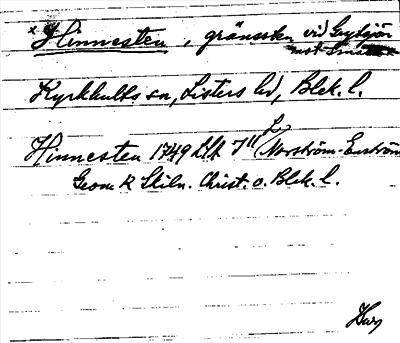 × Hinnesten, gränssten vid Grytsjön
mot
Kyrkhults sn, Listers hd, Blek. l.
Hinnesten 1749 LA 7" (Norström-Enström
Geom K Skiln. Christ. o. Blek. l.